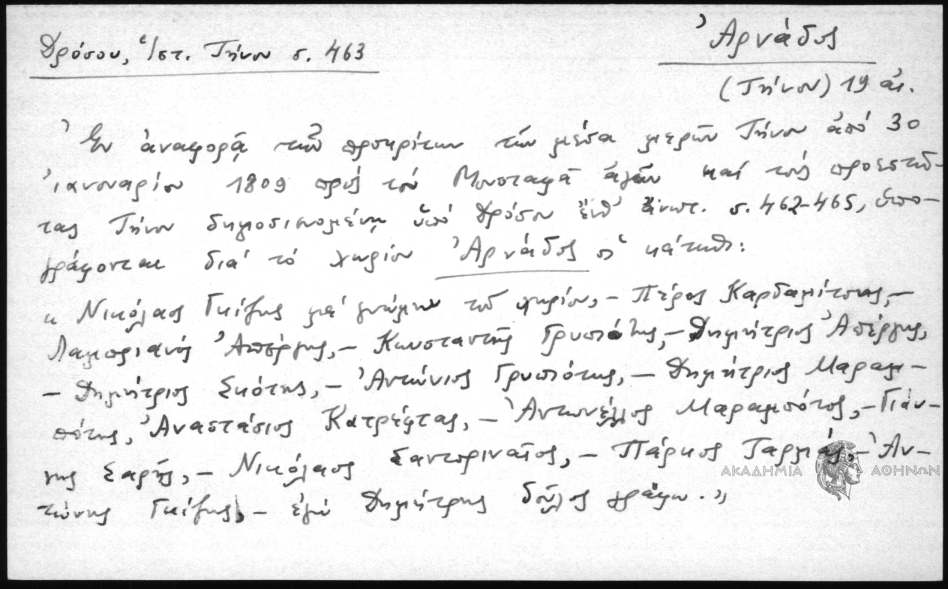 Δρόσου, Ἱστ. Τήνου σ. 463
Ἀρνάδος
(Τήνου) 19 αἰ.
Ἐν ἀναφορᾷ τῶν προκρίτων τῶν μέσα μερῶν Τήνου ἀπό 30
Ἰανουαρίου 1809 πρός τόν Μουσταφᾶ ἀγᾶν καί τούς προεστῶ-
τας Τήνου δημοσιευομένῃ ὑπό Δρόσου ἔνθ' ἀνωτ. σ. 462-465, ὑπο-
γράφονται διά τό χωρίον Ἀρνάδος οἱ κάτωθι:
« Νικόλαος Γκίζης μέ γνώμην τοῦ χωρίου, – Πέρος Καρδαμίτσης, –
Λαμπριανός Ἀπέργης, – Κωσταντής Γρυπιότης, – Δημήτριος Ἀπέργης,
– Δημήτριος Σκότης, – Ἀντώνιος Γρυπιότης, – Δημήτριος Μαραμ-
πότης, Ἀναστάσιος Κατρέφτας, – Ἀντωνέλλος Μαραμπότος, – Γιάν-
νης Σαρῆς, – Νικόλαος Σαντοριναῖος, – Πάρκος – Ἀν-
τώνης Γκίζης, – ἐγώ Δημήτρης δοῦλος γράφω. »
ΑΚΑΔΗΜΙΑ ΑΘΗΝΩΝ